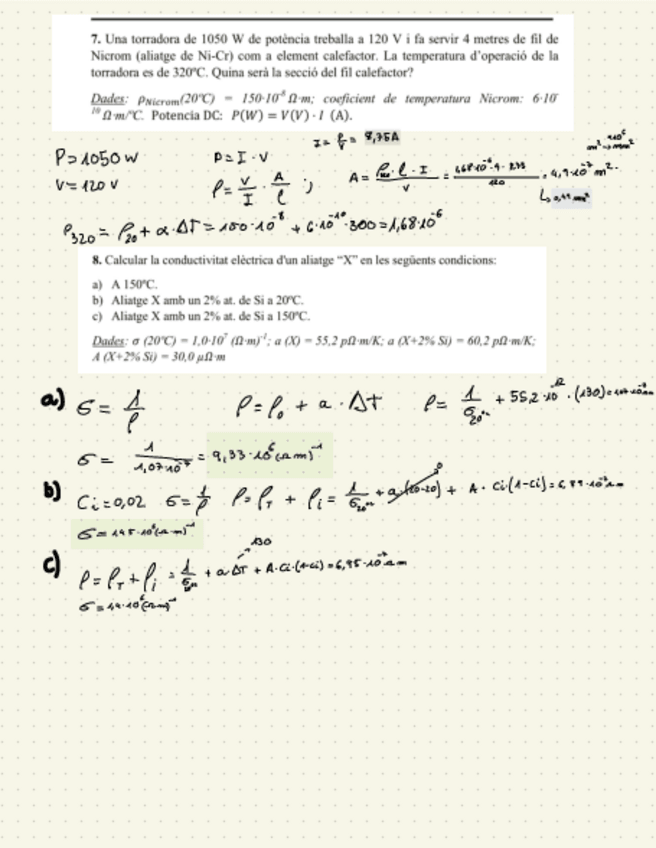 7. Una torradora de 1050 W de potència treballa a 120 V i fa servir 4 metres de fil de
Nicrom (aliatge de Ni-Cr) com a element calefactor. La temperatura d'operació de la
torradora es de 320ºC. Quina serà la secció del fil calefactor?
Dades: ρNicrom(20ºC) = 150·10⁻⁸ Ω·m; coeficient de temperatura Nicrom: 6·10⁻
¹⁰ Ω·m/ºC. Potencia DC: P(W) = V(V) · I (A).
I = P/V = 8,75A
P=1050 W
P=I·V
V=120 V
ρ = V/I · A/l ;
A = l · I / V = = 4,9·10⁻⁷ m².
ρ320 = ρ20 + α·ΔT = 150·10⁻⁸ + 6·10⁻¹⁰·300 = 1,68·10⁻⁶
8. Calcular la conductivitat elèctrica d'un aliatge "X" en les següents condicions:
a) A 150ºC.
b) Aliatge X amb un 2% at. de Si a 20ºC.
c) Aliatge X amb un 2% at. de Si a 150ºC.
Dades: σ (20ºC) = 1,0·10⁷ (Ω·m)⁻¹; a (X) = 55,2 pΩ·m/K; a (X+2% Si) = 60,2 pΩ·m/K;
A (X+2% Si) = 30,0 μΩ·m
a) σ = 1/ρ ρ = ρ₀ + a · ΔT ρ = 1/σ20ºC + 55,2·10⁻¹² · (130)
σ = 1/1,07·10⁻⁷ = 9,33·10⁶ (Ω m)⁻¹
b) Ci=0,02 σ = 1/ρ ρ = ρT + ρi = 1/σ20ºC + a·(20-20) + A · Ci(1-Ci) = 6,89·10⁻⁷ Ωm
σ = 1,45·10⁶ (Ω·m)⁻¹
130
c) ρ = ρT + ρi = 1/σ20ºC + a ΔT + A·Ci·(1-Ci) = 6,95·10⁻⁷ Ωm